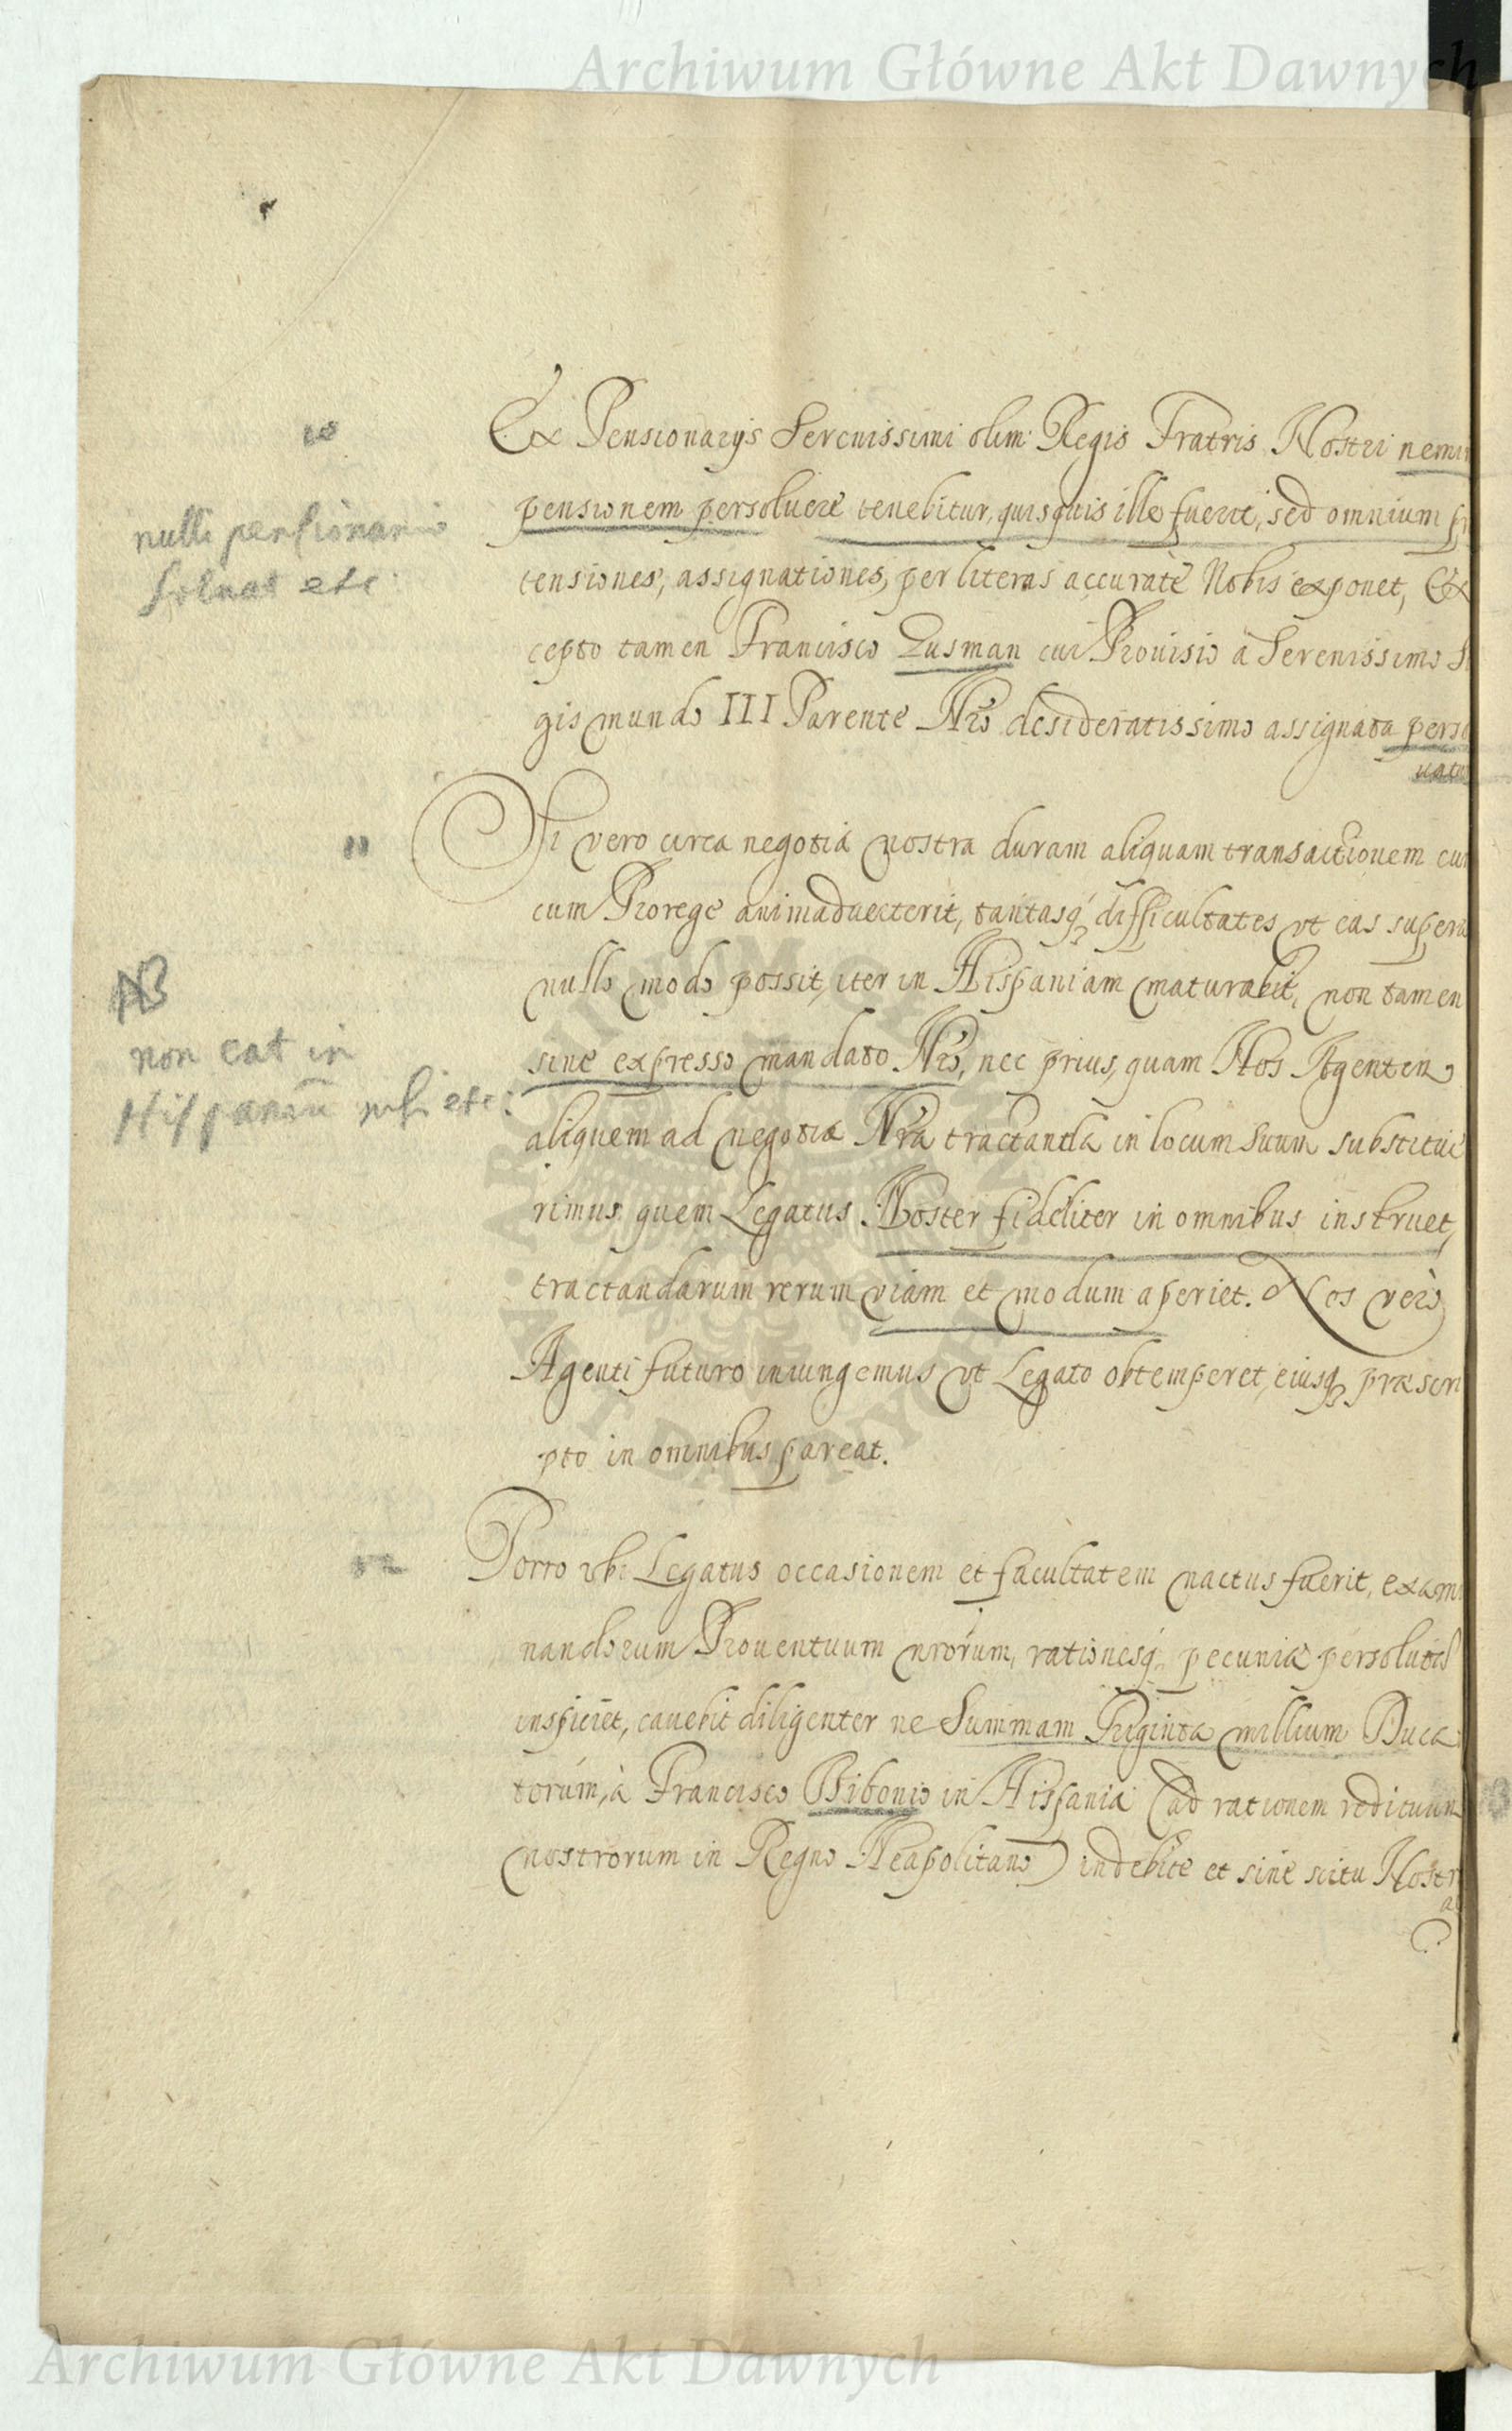 Archiwum Główne Akt Dawnych
10
Ex Pensionarijs Serenissimi olim Regis Fratris Nostri nemin
pensionem persoluere tenebitur, quisquis ille fuerit, sed omnium
nulli pensionario
soluat etc:
tensiones, assignationes, per literas accuratè Nobis exponet, Ex
cepto tamen Francisco Gusman cui Prouisio à Serenissimo Si
gismundo III Parente Nro desideratissimo assignata perso
uatur
11
Si vero circa negotia nostra duram aliquam transactionem cum
cum Prorege animaduerterit, tantasq; difficultates vt eas supera
NB
nullo modo possit, iter in Hispaniam maturabit, non tamen
non eat in
sine expresso mandato Nro, nec prius, quam Nos Agentem
Hispaniā nisi etc:
aliquem ad negotia Nra tractanda in locum suum substitue
rimus quem Legatus Noster fideliter in omnibus instruet,
tractandarum rerum viam et modum aperiet. Nos verò
Agenti futuro iniungemus vt Legato obtemperet, eiusq; præscri
pto in omnibus pareat.
12
Porro vbi Legatus occasionem et facultatem nactus fuerit, exami
nandorum Prouentuum nrorum, rationesq; pecuniæ persolutæ
inspiciet, cauebit diligenter ne Summam Triginta millium Duca
torum, à Francisco Bibonio in Hispania (ad rationem redituum
nostrorum in Regno Neapolitano) indebite et sine scitu Nostr
ac
ARCHIWUM GŁÓWNE AKT DAWNYCH
Archiwum Główne Akt Dawnych